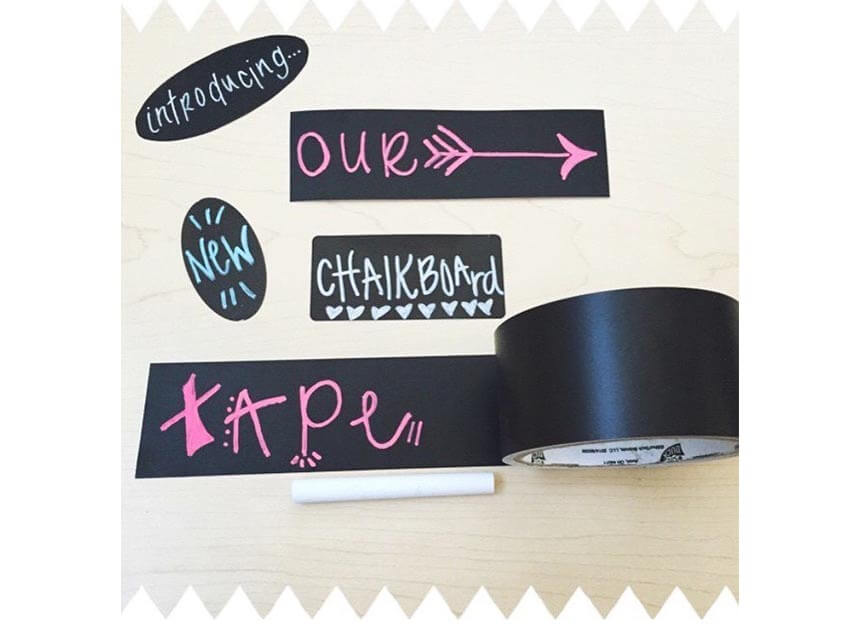 introducing...
OUR
New
CHAlKBOArd
tApe